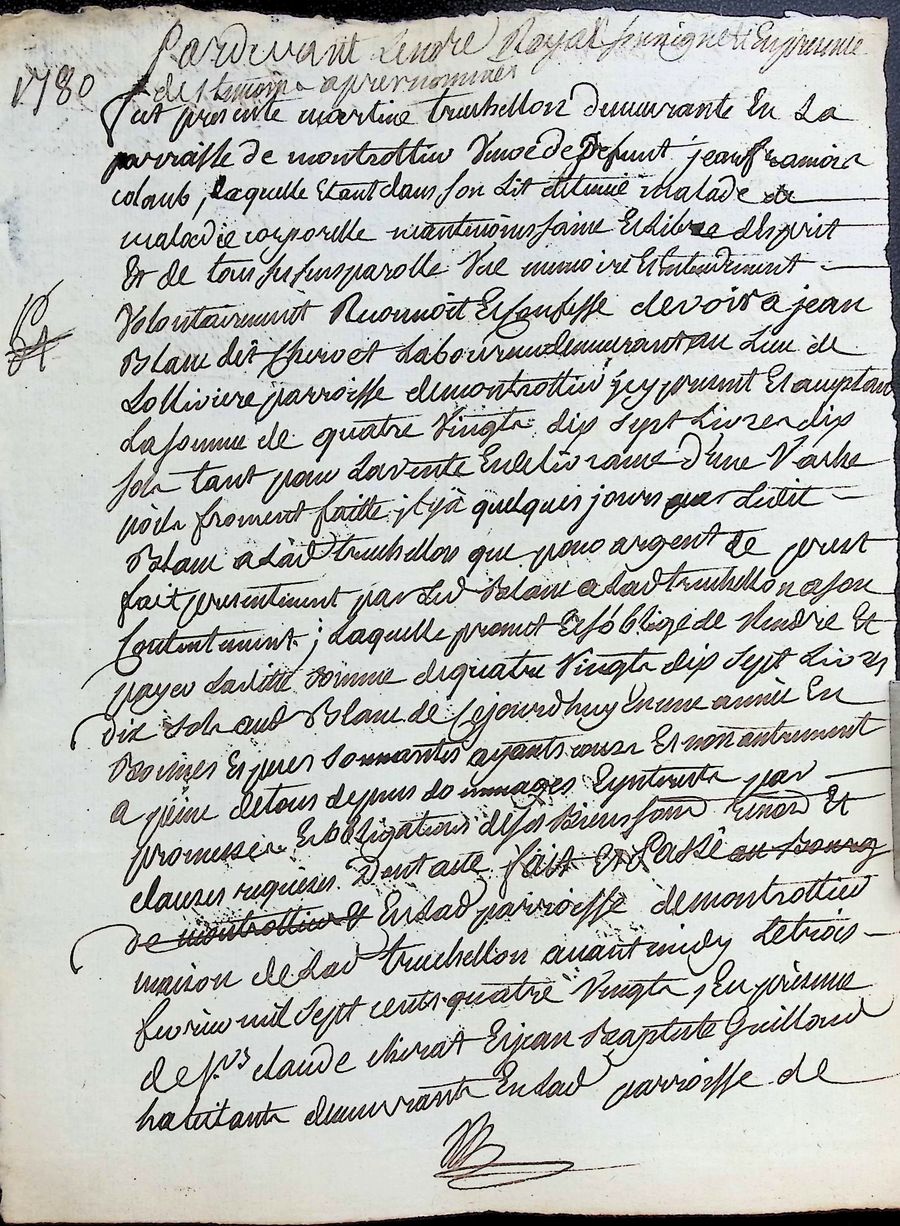 Pardevant Lenore Royal soussigné & En presence
1780
des temoins apres nommés
fut presente martine truchellon demeurante En La
parroisse de montrottier Veuve de Defunt jean francois
colomb, Laquelle Etant dans son Lit detenue malade de
maladie corporelle neantmoins saine Et Libre d'Esprit
Et de tous ses sens parolle Vue memoire Et Entendement
Volontairement Reconnoit Et Confesse devoir a jean
Blanc dit Cheroct Laboureur demeurant au Lieu de
Lolliviere parroisse de montrottier jcy present Et acceptant
La somme de quatre Vingts dix sept Livres dix
sols tant pour La vente En delivrance d'une Vache
poils froment faitte jl y a quelques jours par Ledit
Blanc a Lad truchellon que pour argent de prest
fait presentement par Led Blanc a Lad truchellon a son
Contentement ; Laquelle promet Et s'oblige de Rendre Et
payer Laditte somme de quatre Vingts dix sept Livres
dix sols aud Blanc de Cejourd'huy En une année En
Bonnes Especes sonnantes ayants cours Et non autrement
a peine de tous depens dommages Et jnterests par
promesses Et obligations de ses Biens soum renon Et
clauses requises. Dont acte fait Et Passé au Bourg
de montrottier Et En Lad parroisse de montrottier
maison de Lad truchellon avant midy Le trois
fevrier mil sept cents quatre Vingts, En presence
de s.rs claude cherat Et jean Baptiste Guilloud
habitants demeurants En Lad parroisse de